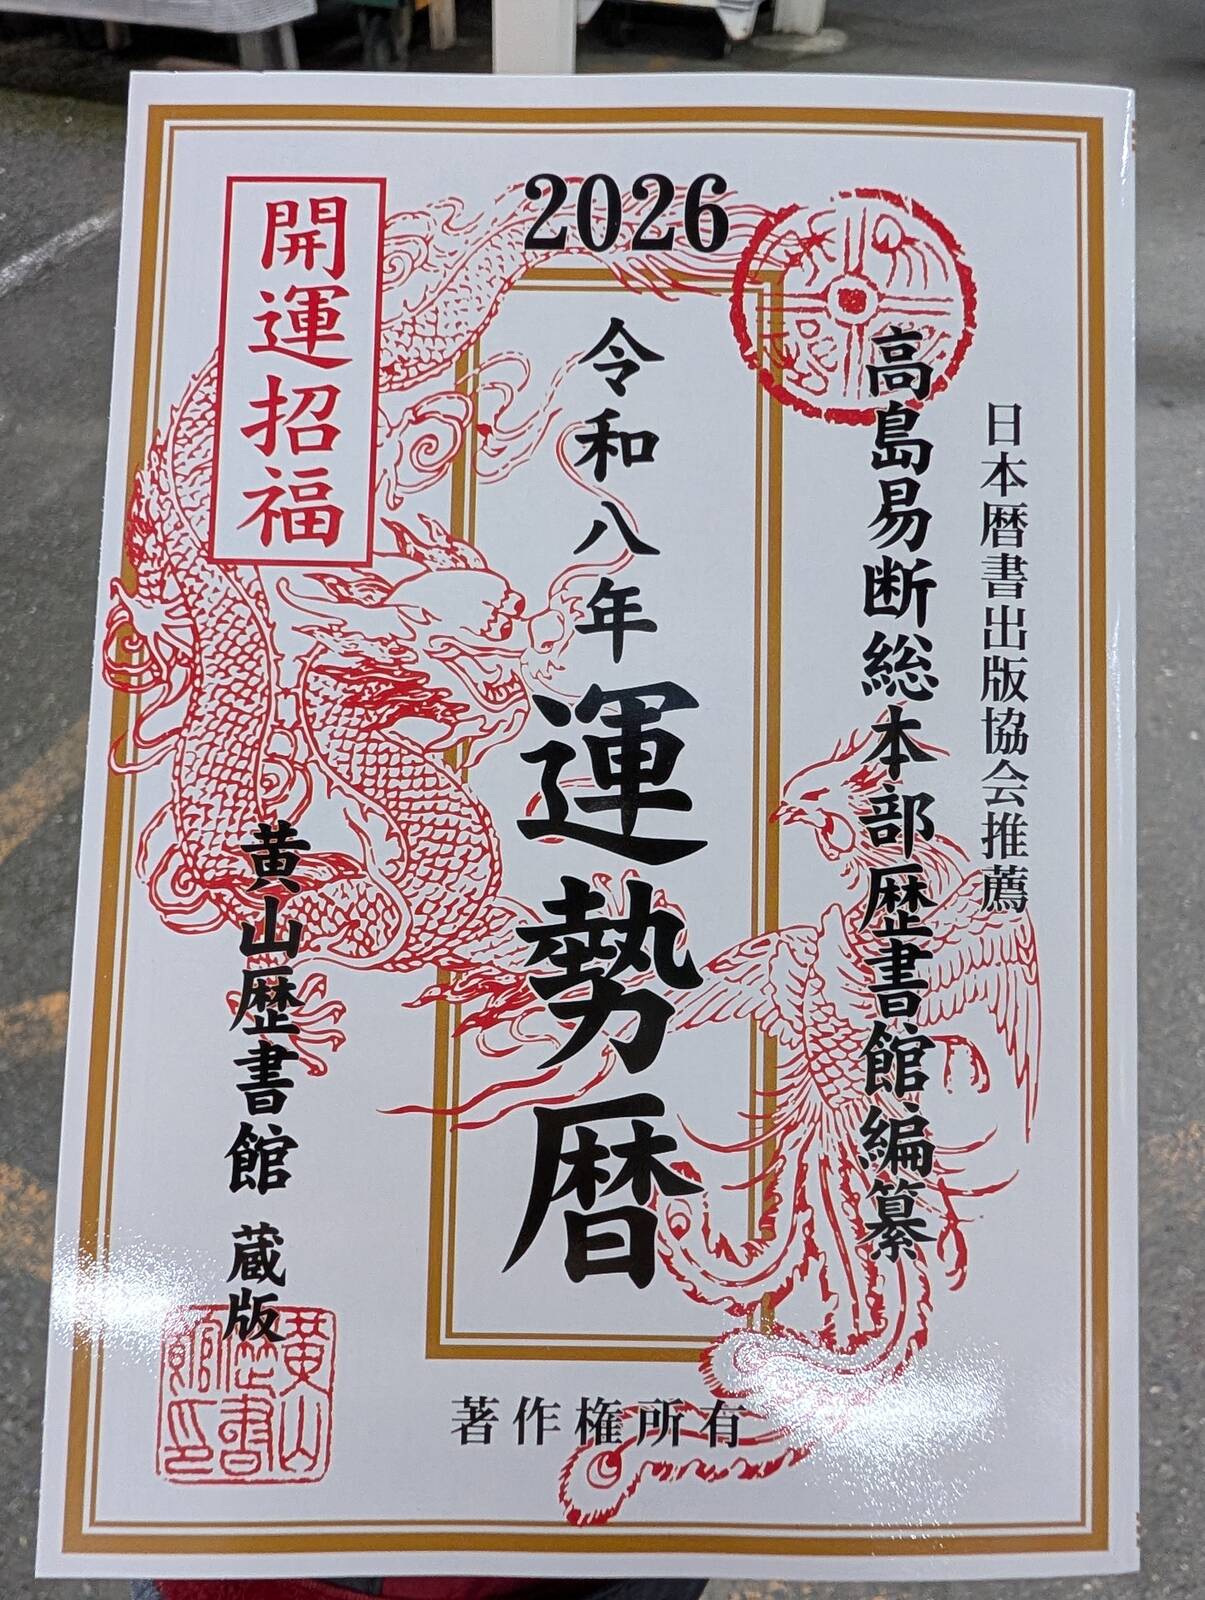 2026
日本暦書出版協会推薦
高島易断総本部歴書館編纂
令和八年運勢暦
開運招福
黄山歴書館 蔵版
著作権所有